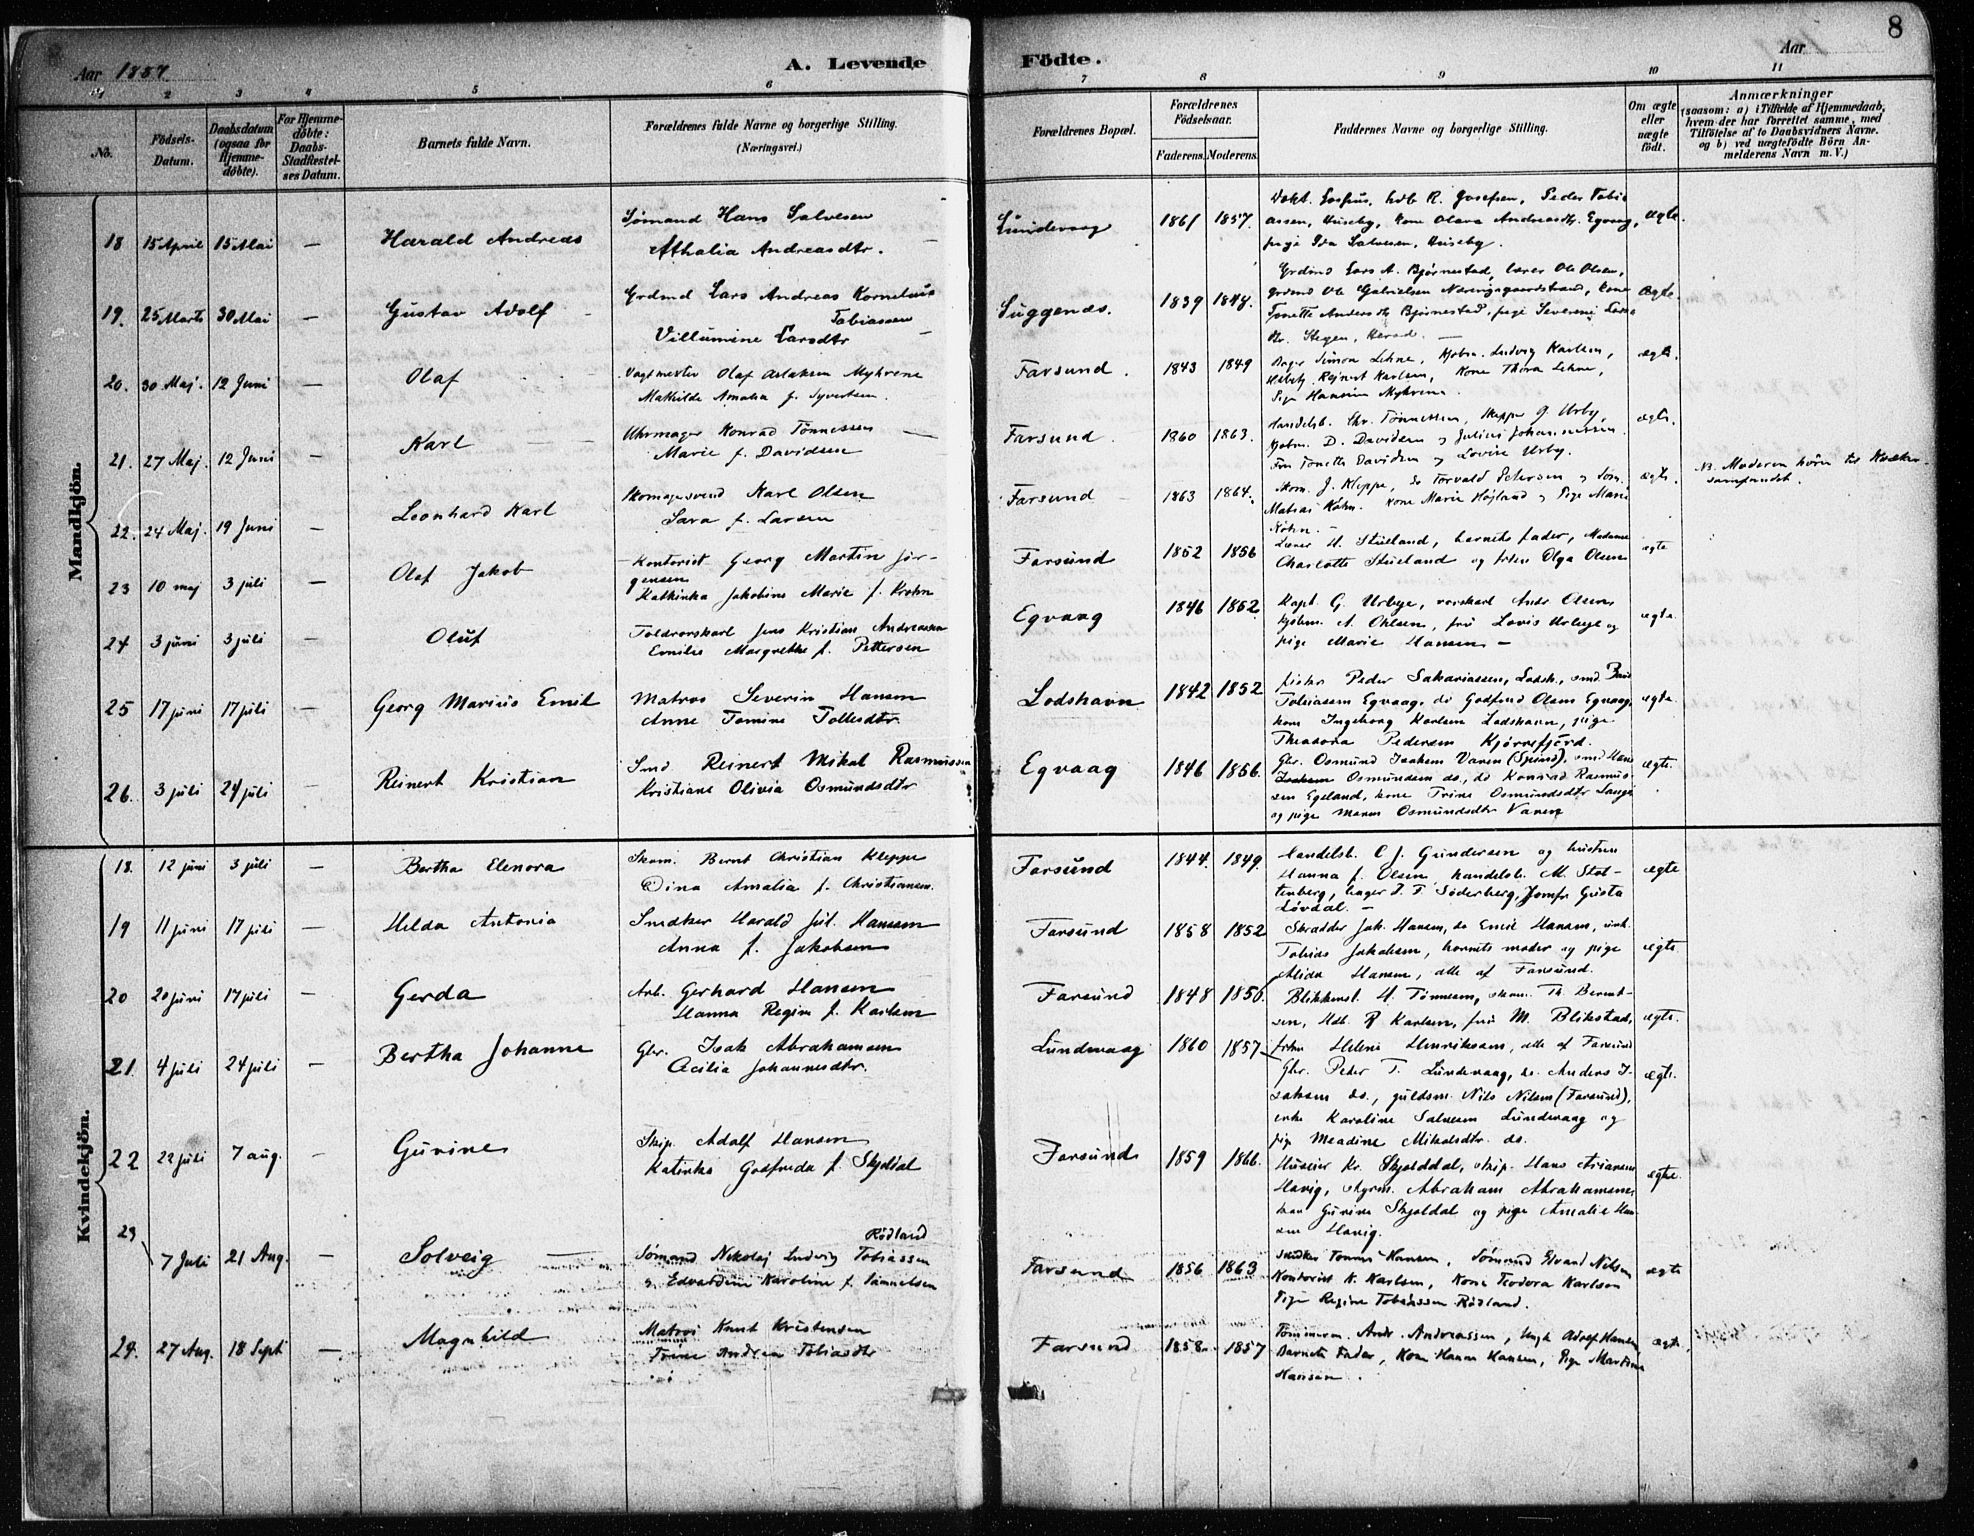 8
Aar 1887.
A. Levende
Födte.
Aar
1 2 3 4 5 6 7 8 9 10 11
No.
Födsels-Datum.
Daabsdatum (ogsaa for Hjemme-döbte).
For Hjemme-döbte: Daabs-Stadfæstel-ses Datum.
Barnets fulde Navn.
Forældrenes fulde Navne og borgerlige Stilling. (Næringsvei.)
Forældrenes Bopæl.
Forældrenes Födselsaar.
Faderens. Moderens.
Faddernes Navne og borgerlige Stilling.
Om ægte eller uægte födt.
Anmærkninger
(saasom: a) i Tilfælde af Hjemmedaab,
hvem der har forrettet samme, med
Tilföielse af to Daabsvidners Navne.
og b) ved uægtefödte Börn An-
melderens Navn m. V.)
Mandkjön.
18 15 April 15 Mai — Harald Andreas
Sømand Hans Salvesen
Athalia Andreasdtr.
Lundevaag 1861 1857.
assen, Huseby, kone Olava Andreasdtr. Egvaag,
pige Ida Salvesen, Huseby.
ægte.
19. 25 Marts 30 Mai — Gustav Adolf
Grdmd Lars Andreas Kornelius
Tobiassen
Villumine Larsdtr
Suggenes. 1839 1848.
Grdmd Lars A. Bjørnestad, lærer Ole Olsen,
ægte.
20. 30 Maj. 12 Juni — Olaf
Vagtmester Olaf Aslaksen Myhrene
Mathilde Amalia f. Syvertsen.
Farsund. 1843 1849
Simon Lehne, Kjøbm. Ludvig Karlsen,
Reinert Karlsen, Kone Thora Lehne,
Pige Hansine Myhrene.
ægte.
21. 27 Maj. 12 Juni — Karl
Uhrmager Konrad Tönnessen
Marie f. Davidsen
Farsund. 1860 1863.
Handelsb. Chr. Tønnessen, Skipper G. Urby,
Kjøbm. D. Davidsen og Julius Johannessen.
Fru Tonette Davidsen og Lovise Urby.
ægte.
22. 24 Maj. 19 Juni — Leonhard Karl
Skomagersvend Karl Olsen
Sara f. Larsen
Farsund 1863 1864.
Skom. J. Kleppe, do Torvald Petersen og Søm.
Matias Køhn. Kone Marie Højland og Pige Marie
Køhn. —
ægte.
NB. Moderen hörer til Kvæker-
samfundet.
23 10 maj 3 juli — Olaf Jakob
Kontorist Georg Martin Jör-
gensen
Kathinka Jakobine Marie f. Krohn
Farsund 1852 1856
Lærer H. Stueland, barnets fader, Madame
Charlotte Stueland og frøken Olga Olsen
ægte
24 3 juni 3 juli — Oluf
Toldrorskarl Jens Kristian Andreassen
Emilie Margrethe f. Pettersen
Egvaag 1846 1852
Kapt. G. Urbye, rorskarl Andr. Olsen
kjøbm. A. Ohlsen, fru Lovis Urbye og
pige Marie Hansen —
ægte.
25 17 juni 17 juli — Georg Marius Emil
Matros Severin Hansen
Anne Tomine Tollesdtr.
Lodshavn 1842 1852
Peder Sakariassen, Lodsh., smd
Tobiassen Egvaag, do Godfred Olsen Egvaag,
kone Ingeborg Karlsen Lodshavn, pige
Theodora Pedersen Kjørrefjord.
ægte.
26. 3 juli 24 juli — Reinert Kristian
Smd. Reinert Mikal Rasmussen
Kristiane Olivia Osmundsdtr
Egvaag 1846 1856.
Gbr. Osmund Isaksen Varen (Spind), smd Hans
Osmundsen do., do Konrad Rasmus-
sen Egeland, kone Trine Osmundsdtr
og pige Maren Osmundsdtr Varen
ægte.
Kvindekjön.
18. 12 juni 3 juli — Bertha Elenora
Skom. Bernt Christian Kleppe
Dina Amalia f. Christiansen.
Farsund 1844. 1849.
Handelsb. C J. Gundersen og hustru
Hanna f. Olsen, handelsb. M. Stol-
tenberg, bager J. F. Søderberg, Jomfr Gusta
Løvdal. —
ægte
19 11 juni 17 juli — Helda Antonia
Smedker Harald Jul. Hansen
Anna f. Jakobsen
Farsund 1858 1852
Skrædder Jak. Hansen, do Emil Hansen,
Tobias Jakobsen, barnets moder og pige
Alida Hansen, alle af Farsund.
ægte
20 20 juni 17 juli — Gerda
Arb. Gerhard Hansen
Hanna Regine f. Karlsen
Farsund 1848 1856.
Blikkensl. H. Tønnesen, skom. Th. Bernt-
sen, Hdb. R Karlsen, fru M. Blikstad,
frøken Helene Henriksen, alle af Farsund
ægte.
21 4 juli 24 juli — Bertha Johanne
Gbr. Isak Abrahamsen
Cecilia Johannesdtr.
Lundevaag 1860 1857
Gbr. Peder T. Lundevaag, do. Anders I-
saksen do., guldsm. Nils Nilsen (Farsund),
enke Karoline Salvesen Lundevaag og
pige Meadine Mikalsdtr. do.
ægte.
22 22 juli 7 aug. — Guvine
Skip. Adolf Hansen
Katinka Godfreda f. Skjoldal
Farsund 1859 1866.
Huseier Kr. Skjolddal, skip. Hans Arianssen
Havig, styrm. Abraham Abrahamsen,
Guvine Skjoldal og pige Amalie Han-
sen Havig.
ægte.
23 7 Juli 21 Aug. — Solveig
Rødland
Sømand Nikolaj Ludvig Tobiassen
og Edvardine Karoline f. Samuelsen
Farsund 1856 1863
Smedker Tønnes Hansen, Sømand Edvard Nilsen
Kontorist K. Karlsen, Kone Teodora Karlsen
Pige Regine Tobiassen Rødland.
ægte
29. 27 Aug. 18 Sept — Magnhild
Matros Knut Kristensen
Trine Andrea Tobiasdtr
Farsund 1858. 1857
Tømmerm. Andr. Andreassen, Ungk Adolf Hansen
Barnets Fader, Kone Hanna Hansen, Pige Martine
Hansen.
ægte.